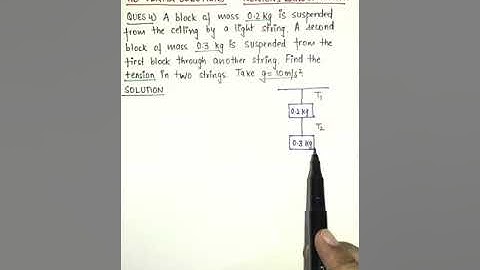 QUES 4) A block of mass 0.2 kg is suspended
from the ceiling by a light string. A second
block of mass 0.3 kg is suspended from the
first block through another string. Find the
tension in two strings. Take g = 10 m/s².
SOLUTION
T₁
0.2 kg
T₂
0.3 kg